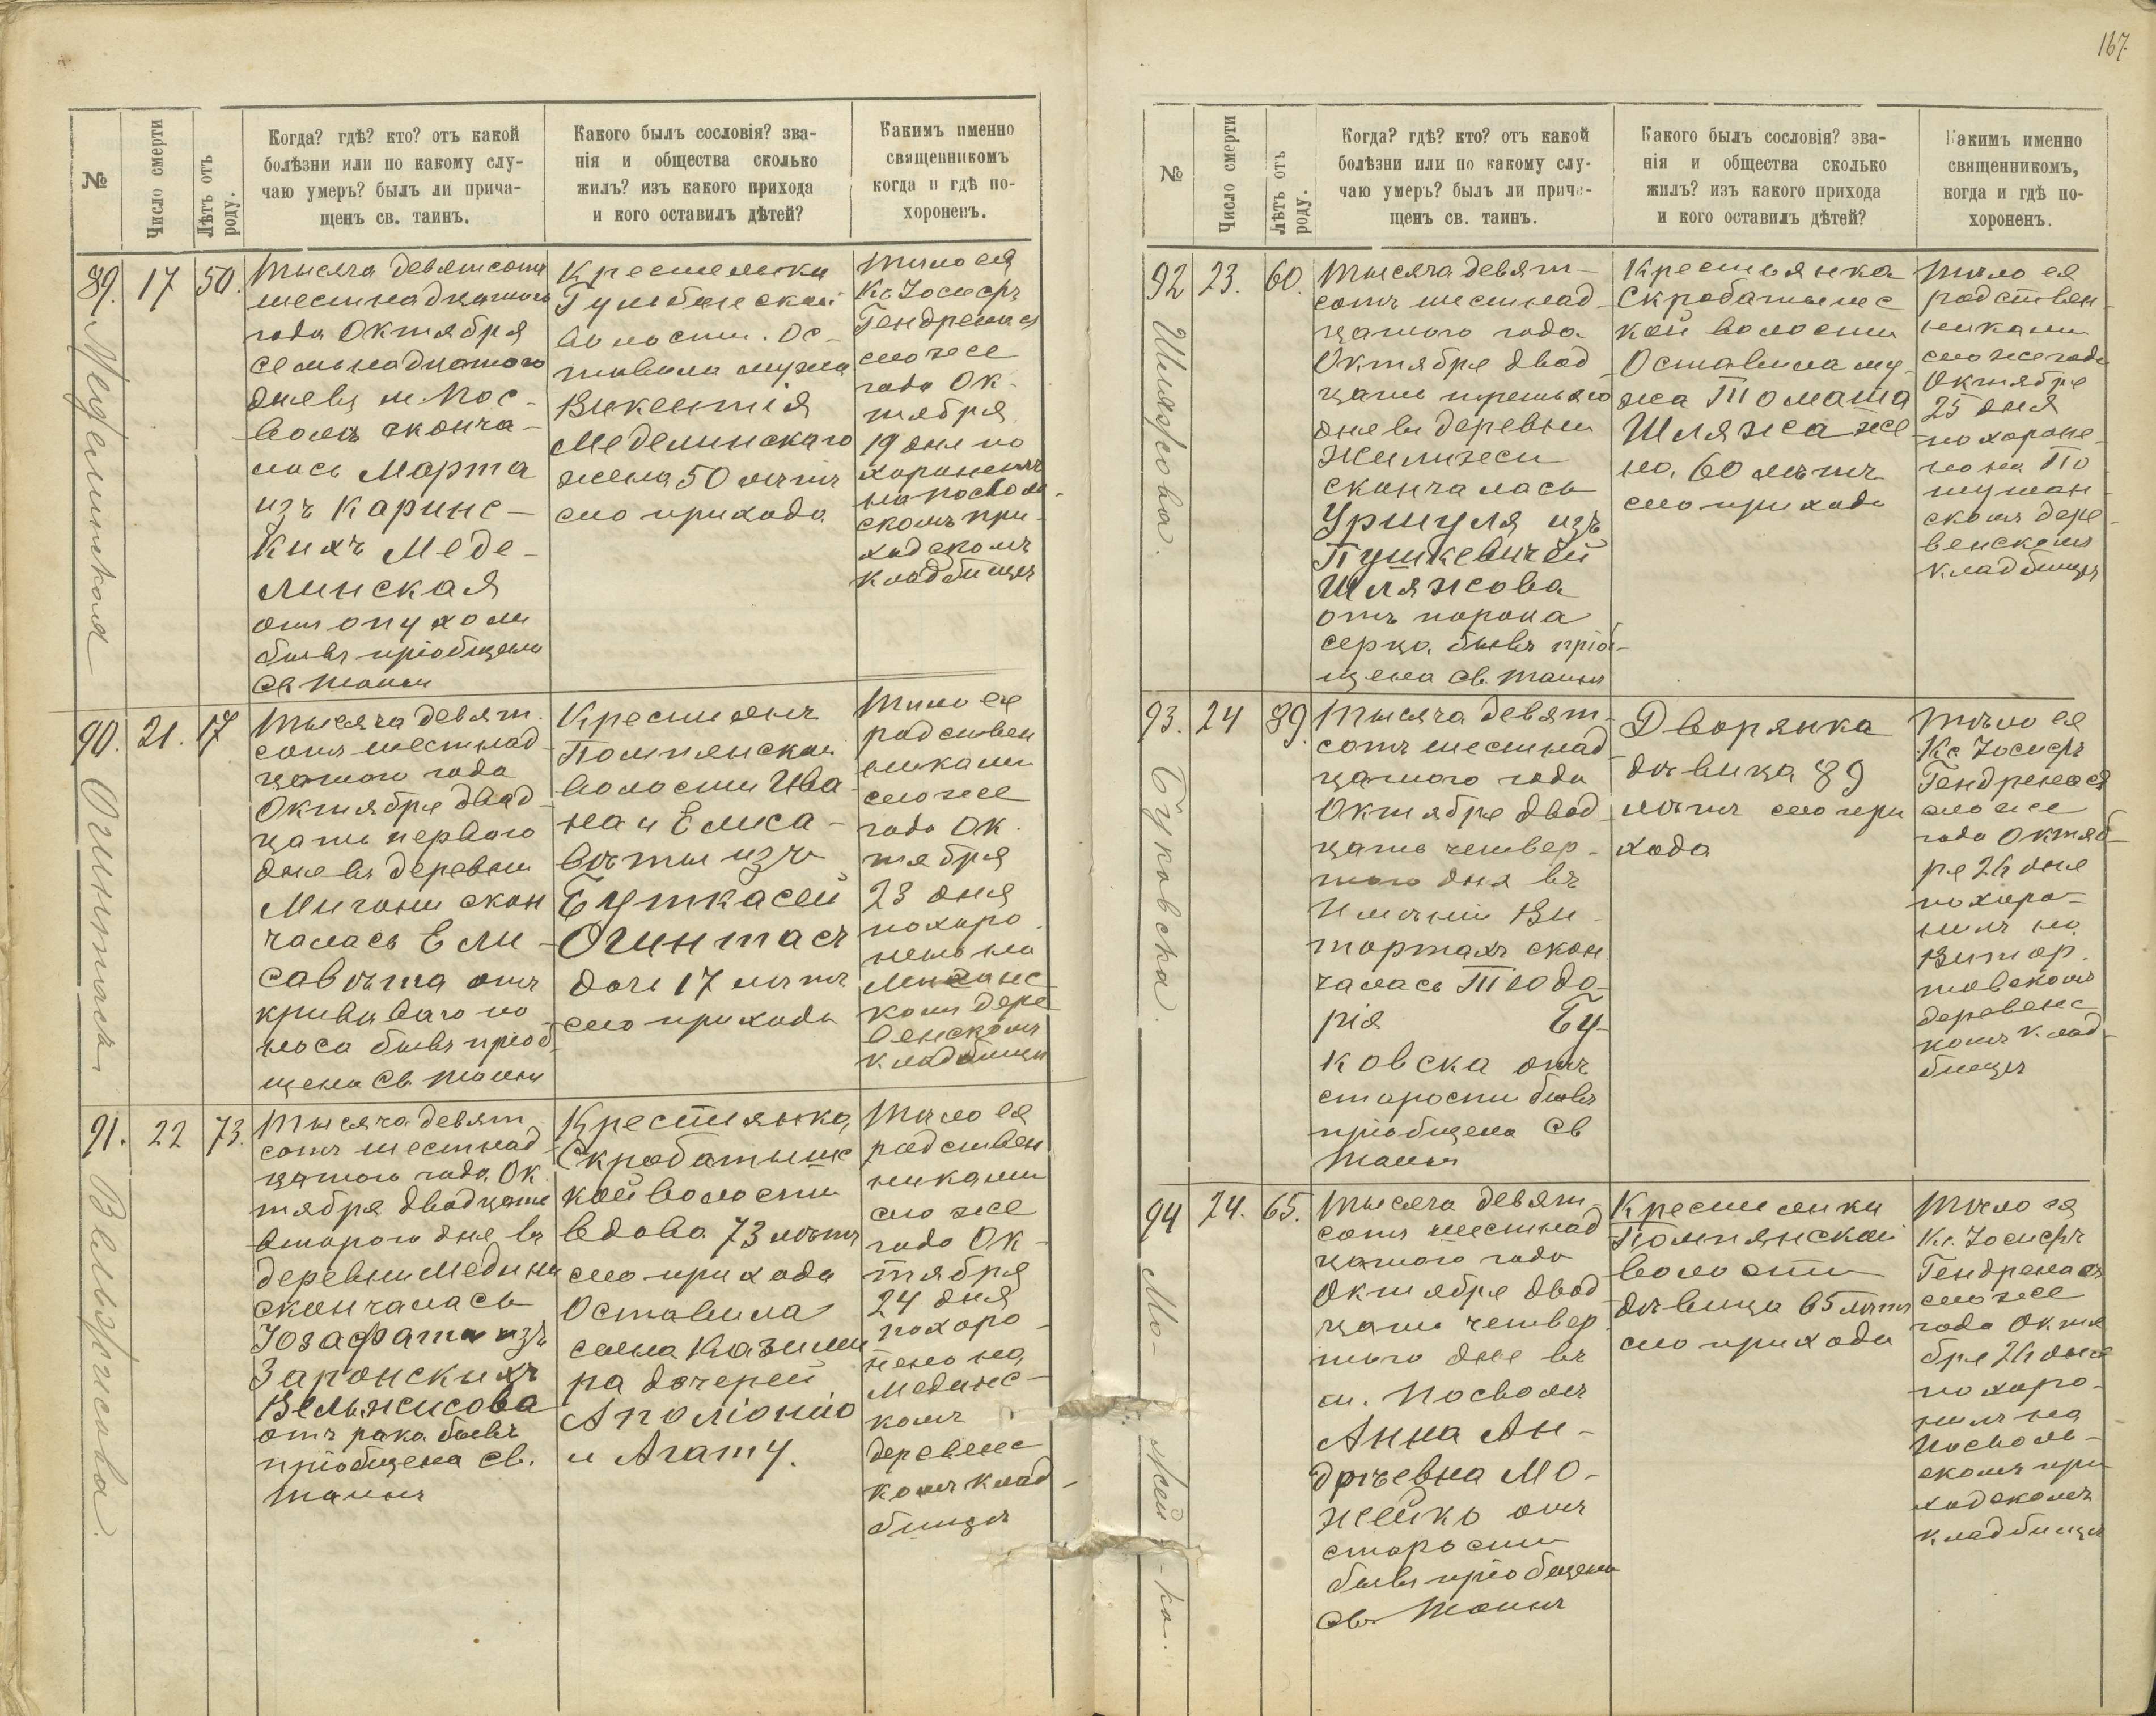 167
№
Число смерти
Лѣтъ отъ
роду.
Когда? гдѣ? кто? отъ какой
болѣзни или по какому слу-
чаю умеръ? былъ ли прича-
щенъ св. таинъ.
Какого былъ сословія? зва-
нія и общества сколько
жилъ? изъ какого прихода
и кого оставилъ дѣтей?
Какимъ именно
священникомъ
когда и гдѣ по-
хороненъ.
89.
Меделинская
17
50.
Тысяча девятсотъ
шестнадцатого
года Октября
семьнадцатого
дня въ м. Пос-
волѣ сконча-
лась Марта
изъ Каринс-
кихъ Меде-
линская
отъ опухоли
бывъ пріобщена
Св Таинъ
Крестьянка
Гумбинской
волости. Ос-
тавила мужа
Викентія
Меделинскаго
жена 50 лѣтъ
сего прихода
Тѣло ея
Кс Іосифъ
Гендреласъ
сего же
года Ок-
тября
19 дня по
хороненъ
на Посволь-
скомъ при-
ходскомъ
кладбищѣ
90.
Огинтасъ
21.
17
Тысяча девят-
сотъ шестнад-
цатого года
Октября двад-
цать перваго
дня въ деревни
Мигони скон
чалась Ели-
савѣта отъ
криваваго по
носа бывъ пріоб-
щена Св. Таинъ
Крестьянъ
Помпянской
волости Ива-
на и Елиса-
вѣты изъ
Буткасей
Огинтасъ
дочь 17 лѣтъ
сего прихода
Тѣло ея
родствен
никами
сего же
года Ок-
тября
23 дня
похоро
нено на
Миганс-
комъ дере
венскомъ
кладбищѣ
91.
Вельжисова.
22
73.
Тысяча девят
сотъ шестнад-
цатого года Ок-
тября двадцать
второго дня въ
деревни Медини
скончалась
Юзафата изъ
Запонскихъ
Вельжисова
отъ рака бывъ
пріобщена Св.
Таинъ
Крестьянка
Скробатышс
кой волости
вдова 73 лѣтъ
сего прихода
Оставила
сына Казими
ра дочерей
Аполіонію
и Агату.
Тѣло ея
родствен
никами
сего же
года Ок-
тября
24 дня
похоро-
нено на
Мединс-
комъ
деревенс
комъ клад-
бищѣ
№
Число смерти
Лѣтъ отъ
роду.
Когда? гдѣ? кто? отъ какой
болѣзни или по какому слу-
чаю умеръ? былъ ли прича-
щенъ св. таинъ.
Какого былъ сословія? зва-
нія и общества сколько
жилъ? изъ какого прихода
и кого оставилъ дѣтей?
Какимъ именно
священникомъ,
когда и гдѣ по-
хороненъ.
92
Шляжова.
23.
60.
Тысяча девят-
сотъ шестнад-
цатого года
Октября двад-
цать третьяго
дня въ деревни
Жилижеи
скончалась
Уршуля изъ
Пушкевичей
Шляжова
отъ порока
серца бывъ пріоб-
щена Св. Таинъ
Крестьянка
Скробатышс
кой волости
Оставила му-
жа Томаша
Шляжа же
на. 60 лѣтъ
сего прихода
Тѣло ея
родствен-
никами
сего же года
Октября
25 дня
похороне-
но на По
тушан-
скомъ дере-
венскомъ
кладбищѣ
93.
Буковска.
24
89.
Тысяча девят-
сотъ шестнад
цатого года
Октября двад-
цать четвер-
того дня въ
Имѣніи Ви-
тортахъ скон
чалась Теодо-
рія Бу-
ковска отъ
старости бывъ
пріобщена Св
Таинъ
Дворянка
дѣвица 89
лѣтъ сего при
хода
Тѣло ея
Кс Іосифъ
Гендреласъ
сего же
года Октяб-
ря 26 дня
похоро-
нилъ на
Витор-
товскомъ
деревенс
комъ клад-
бищѣ
94
Мо-жей-ко.
24.
65.
Тысяча девят-
сотъ шестнад
цатого года
Октября двад
цать четвер
того дня въ
м. Посволѣ
Анна Ан-
дрѣевна Мо-
жейко отъ
старости
бывъ пріобщена
Св. Таинъ
Крестьянка
Помпянской
волости
дѣвица 65 лѣтъ
сего прихода
Тѣло ея
Кс. Іосифъ
Гендреласъ
сего же
года Октя
бря 26 дня
похоро-
нилъ на
Посволь-
скомъ при
ходскомъ
кладбищѣ